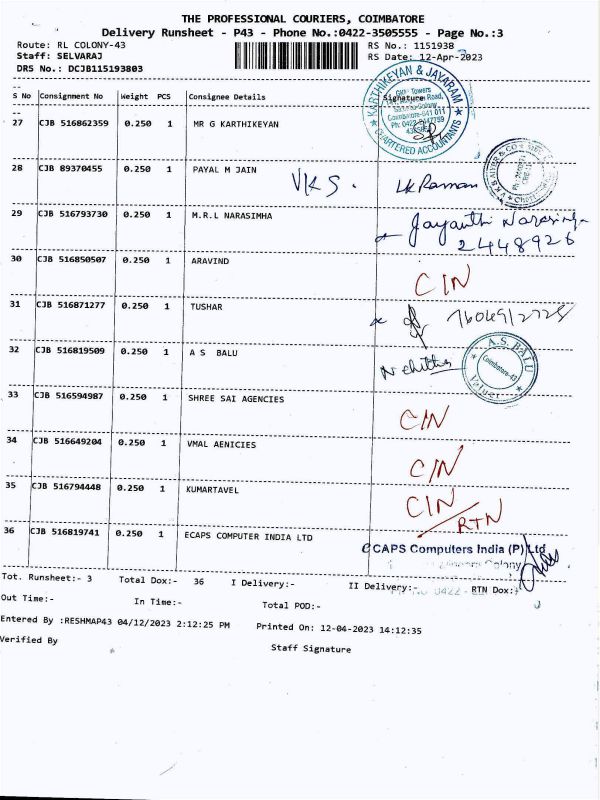 THE PROFESSIONAL COURIERS, COIMBATORE
Delivery Runsheet - P43 - Phone No.:0422-3505555 - Page No.:3
Route: RL COLONY-43 RS No.: 1151938
Staff: SELVARAJ RS Date: 12-Apr-2023
DRS No.: DCJB115193803
S No Consignment No Weight PCS Consignee Details Signature
27 CJB 516862359 0.250 1 MR G KARTHIKEYAN
KARTHIKEYAN & JAYARAM
Towers
Road,
Coimbatore-641 011
CHARTERED ACCOUNTANTS
28 CJB 89370455 0.250 1 PAYAL M JAIN VKS. LK Raman
29 CJB 516793730 0.250 1 M.R.L NARASIMHA Jayanthi Narasimha
2448926
30 CJB 516850507 0.250 1 ARAVIND CIN
31 CJB 516871277 0.250 1 TUSHAR
32 CJB 516819509 0.250 1 A S BALU
A.S. BALU
Coimbatore-43
Valuer
33 CJB 516594987 0.250 1 SHREE SAI AGENCIES CIN
34 CJB 516649204 0.250 1 VMAL AENICIES CIN
35 CJB 516794448 0.250 1 KUMARTAVEL CIN
RTN
36 CJB 516819741 0.250 1 ECAPS COMPUTER INDIA LTD
eCAPS Computers India (P) Ltd
Colony
Tot. Runsheet:- 3 Total Dox:- 36 I Delivery:- II Delivery:- RTN Dox:-
0422 -
Out Time:- In Time:- Total POD:-
Entered By :RESHMAP43 04/12/2023 2:12:25 PM Printed On: 12-04-2023 14:12:35
Verified By Staff Signature